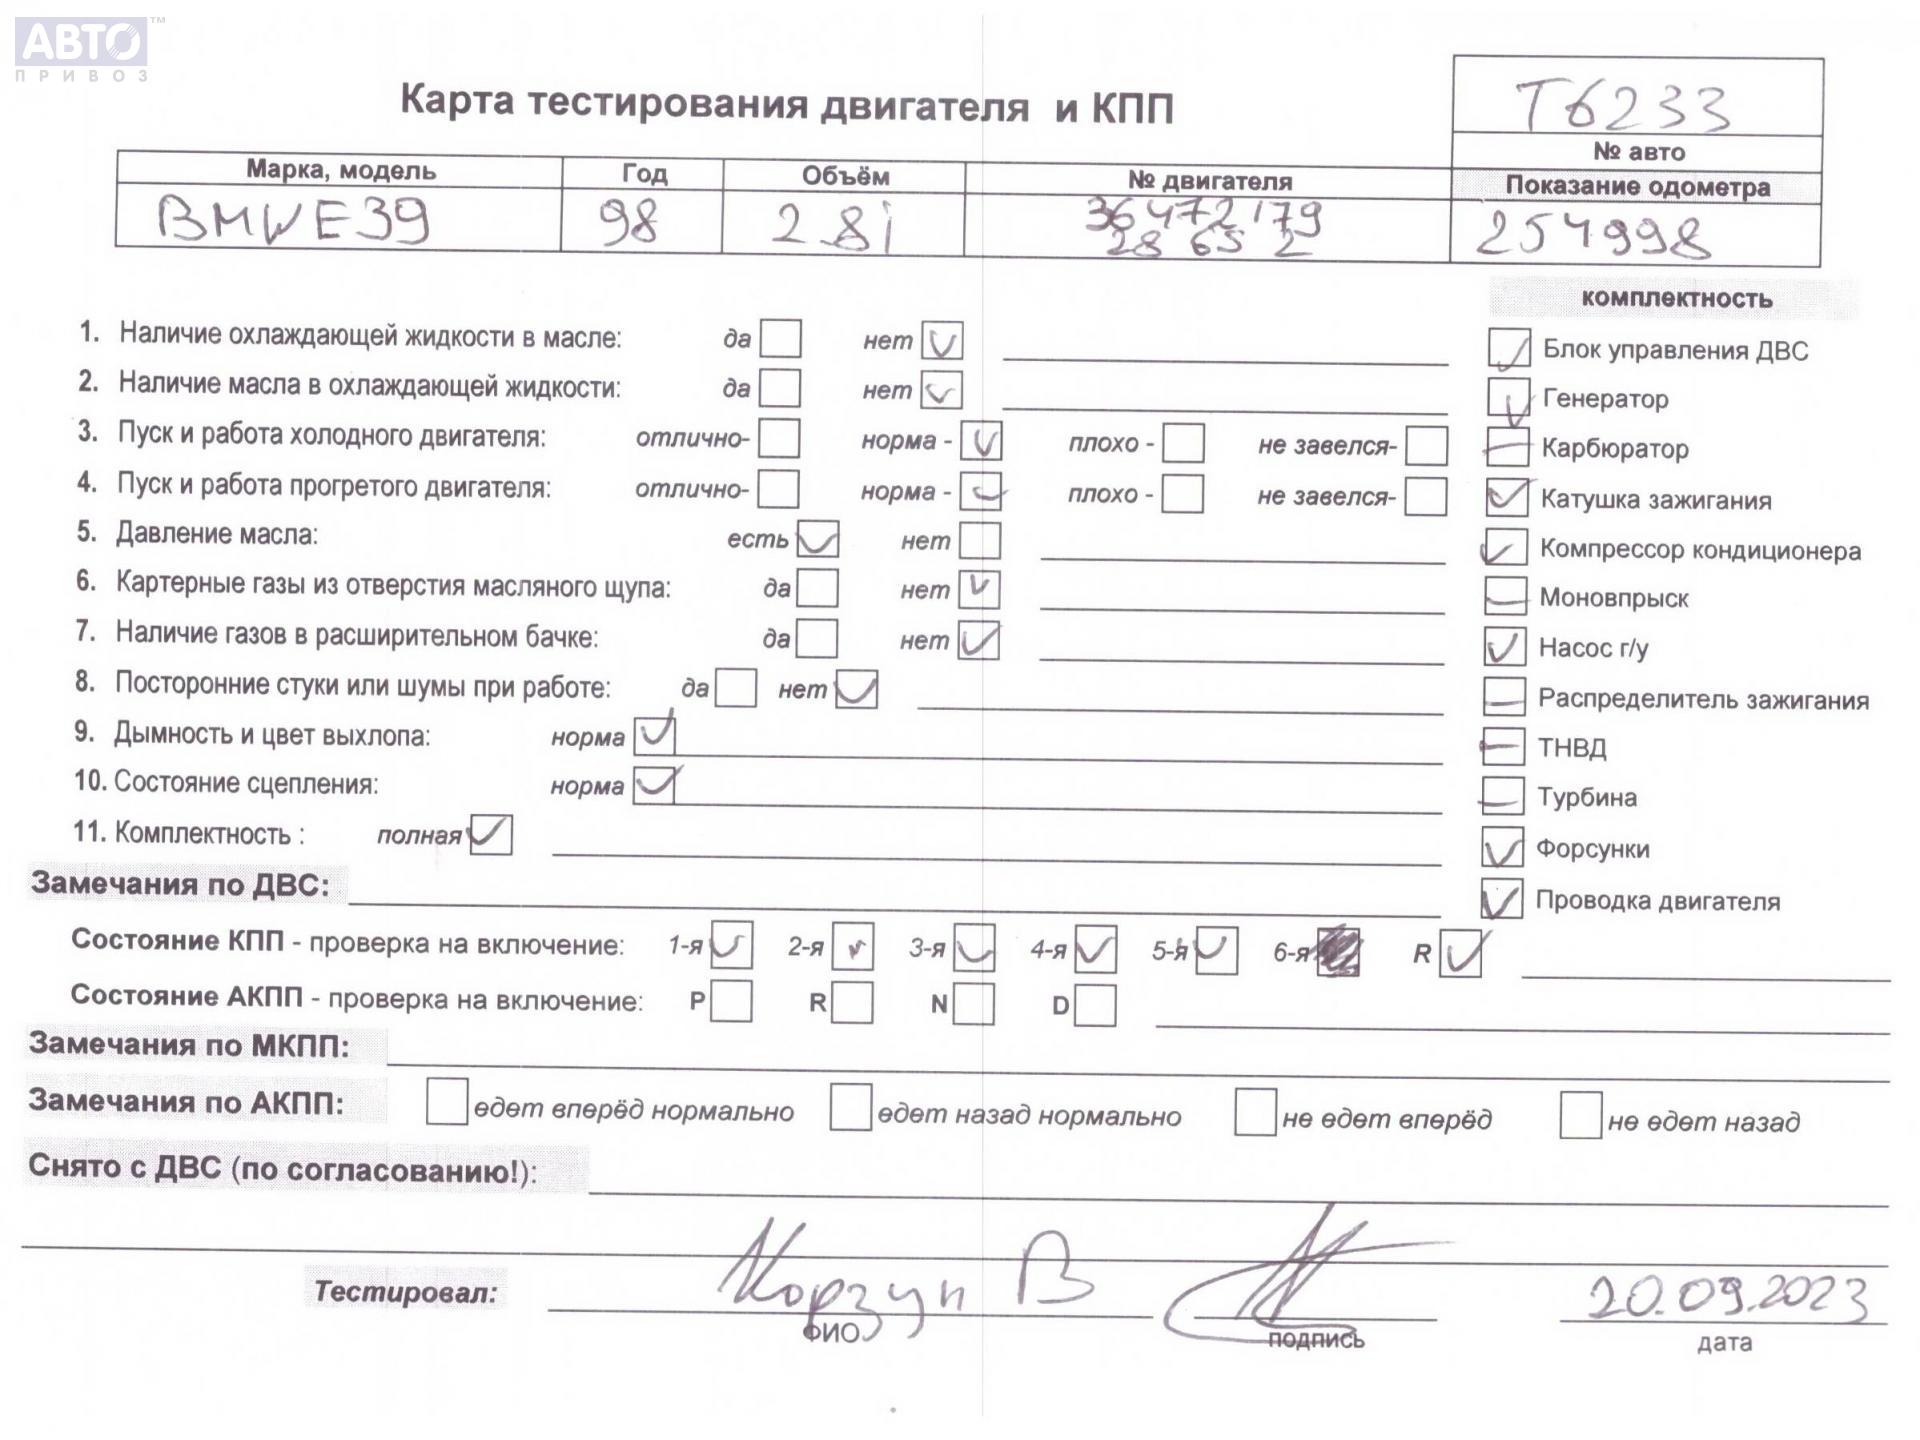 АВТО™
ПРИВОЗ
Карта тестирования двигателя и КПП
Т6233
№ авто
Марка, модель Год Объём № двигателя Показание одометра
BMW E39 98 2.8i 36472179 254998
28 65 2
комплектность
1. Наличие охлаждающей жидкости в масле: да нет Блок управления ДВС
2. Наличие масла в охлаждающей жидкости: да нет Генератор
3. Пуск и работа холодного двигателя: отлично- норма - плохо - не завелся- Карбюратор
4. Пуск и работа прогретого двигателя: отлично- норма - плохо - не завелся- Катушка зажигания
5. Давление масла: есть нет Компрессор кондиционера
6. Картерные газы из отверстия масляного щупа: да нет Моновпрыск
7. Наличие газов в расширительном бачке: да нет Насос г/у
8. Посторонние стуки или шумы при работе: да нет Распределитель зажигания
9. Дымность и цвет выхлопа: норма ТНВД
10. Состояние сцепления: норма Турбина
11. Комплектность : полная Форсунки
Замечания по ДВС: Проводка двигателя
Состояние КПП - проверка на включение: 1-я 2-я 3-я 4-я 5-я 6-я R
Состояние АКПП - проверка на включение: P R N D
Замечания по МКПП:
Замечания по АКПП: едет вперёд нормально едет назад нормально не едет вперёд не едет назад
Снято с ДВС (по согласованию!):
Тестировал: Корзун В 20.09.2023
ФИО подпись дата